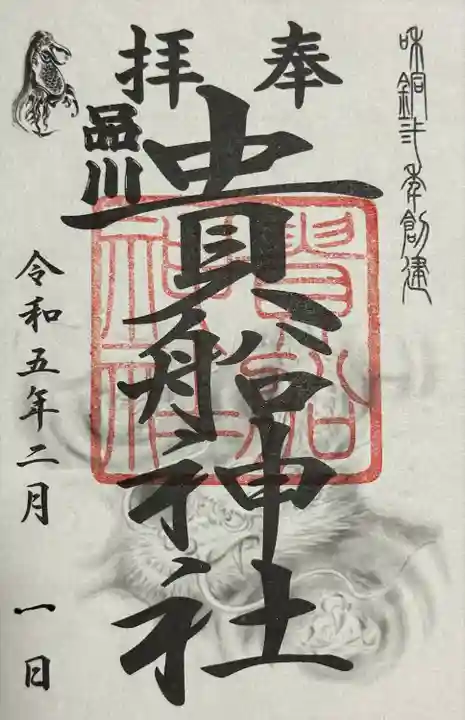 和銅弐年創建
奉拝
品川
貴船神社
貴船神社
令和五年二月一日